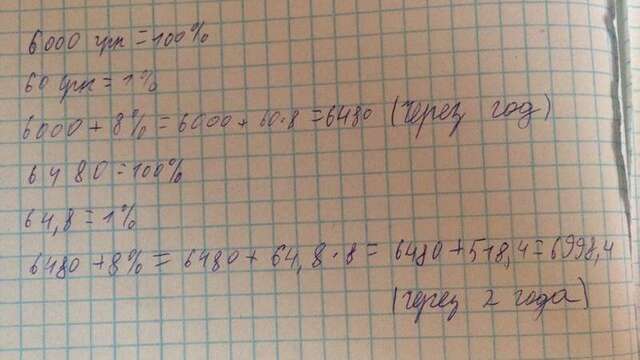 6000 грн = 100%
60 грн = 1%
6000 + 8% = 6000 + 60·8 = 6480 (через год)
6480 = 100%
64,8 = 1%
6480 + 8% = 6480 + 64,8·8 = 6480 + 518,4 = 6998,4
(через 2 года)